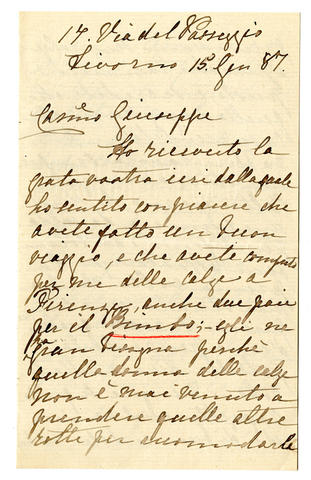 17. Via del Passeggio
Livorno 15. Gen 87.
Cariño Giuseppe
Ho ricevuto la
grata vostra ieri dalla quale
ho sentito con piacere che
avete fatto un buon
viaggio, e che avete comprato
per me delle calze a
Firenze, anche due paie
per il Bimbo; - egli ne
ha gran bisogna perchè
quella donna delle calze
non è mai venuto a
prendere quelle altre
rotte per raccomodarle